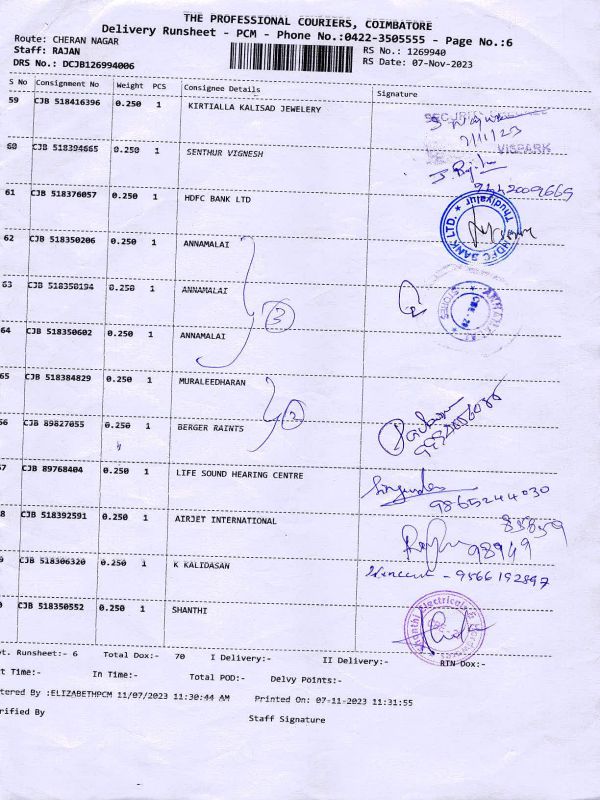 THE PROFESSIONAL COURIERS, COIMBATORE
Delivery Runsheet - PCM - Phone No.:0422-3505555 - Page No.:6
Route: CHERAN NAGAR RS No.: 1269940
Staff: RAJAN RS Date: 07-Nov-2023
DRS No.: DCJB126994006
S No Consignment No Weight PCS Consignee Details Signature
59 CJB 518416396 0.250 1 KIRTIALLA KALISAD JEWELERY
7/11/23
60 CJB 518394665 0.250 1 SENTHUR VIGNESH VISPARK
9442009669
61 CJB 518376057 0.250 1 HDFC BANK LTD
HDFC BANK LTD. * Thudiyalur *
62 CJB 518350206 0.250 1 ANNAMALAI
63 CJB 518350194 0.250 1 ANNAMALAI
3
64 CJB 518350602 0.250 1 ANNAMALAI
65 CJB 518384829 0.250 1 MURALEEDHARAN
2
56 CJB 89827055 0.250 1 BERGER RAINTS
57 CJB 89768404 0.250 1 LIFE SOUND HEARING CENTRE
9865244030
8 CJB 518392591 0.250 1 AIRJET INTERNATIONAL
83859
98949
9 CJB 518306320 0.250 1 K KALIDASAN
Vincent - 9566192897
0 CJB 518350552 0.250 1 SHANTHI
Shanthi Electricals &
t. Runsheet:- 6 Total Dox:- 70 I Delivery:- II Delivery:- RTN Dox:-
t Time:- In Time:- Total POD:- Delvy Points:-
tered By :ELIZABETHPCM 11/07/2023 11:30:44 AM Printed On: 07-11-2023 11:31:55
rified By Staff Signature